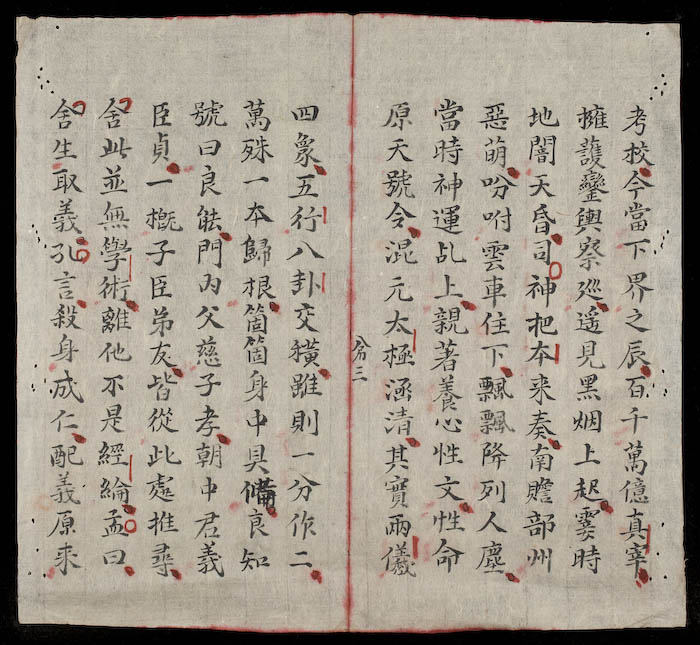 考校今當下界之辰百千萬億真宰
擁護鑾輿察巡遥見黑烟上起霎時
地闇天昏司神把本来奏南贍部州
惡萌吩咐雲車住下飄飄降列人塵
當時神運乩上親著養心性文性命
原天號令混元太極涵清其實兩儀
分三
四象五行八卦交橫雖則一分作二
萬殊一本歸根箇箇身中具備良知
號曰良能門內父慈子孝朝中君義
臣貞一概子臣弟友皆從此處推尋
舍此並無學術離他不是經綸孟曰
舍生取義孔言殺身成仁配義原来